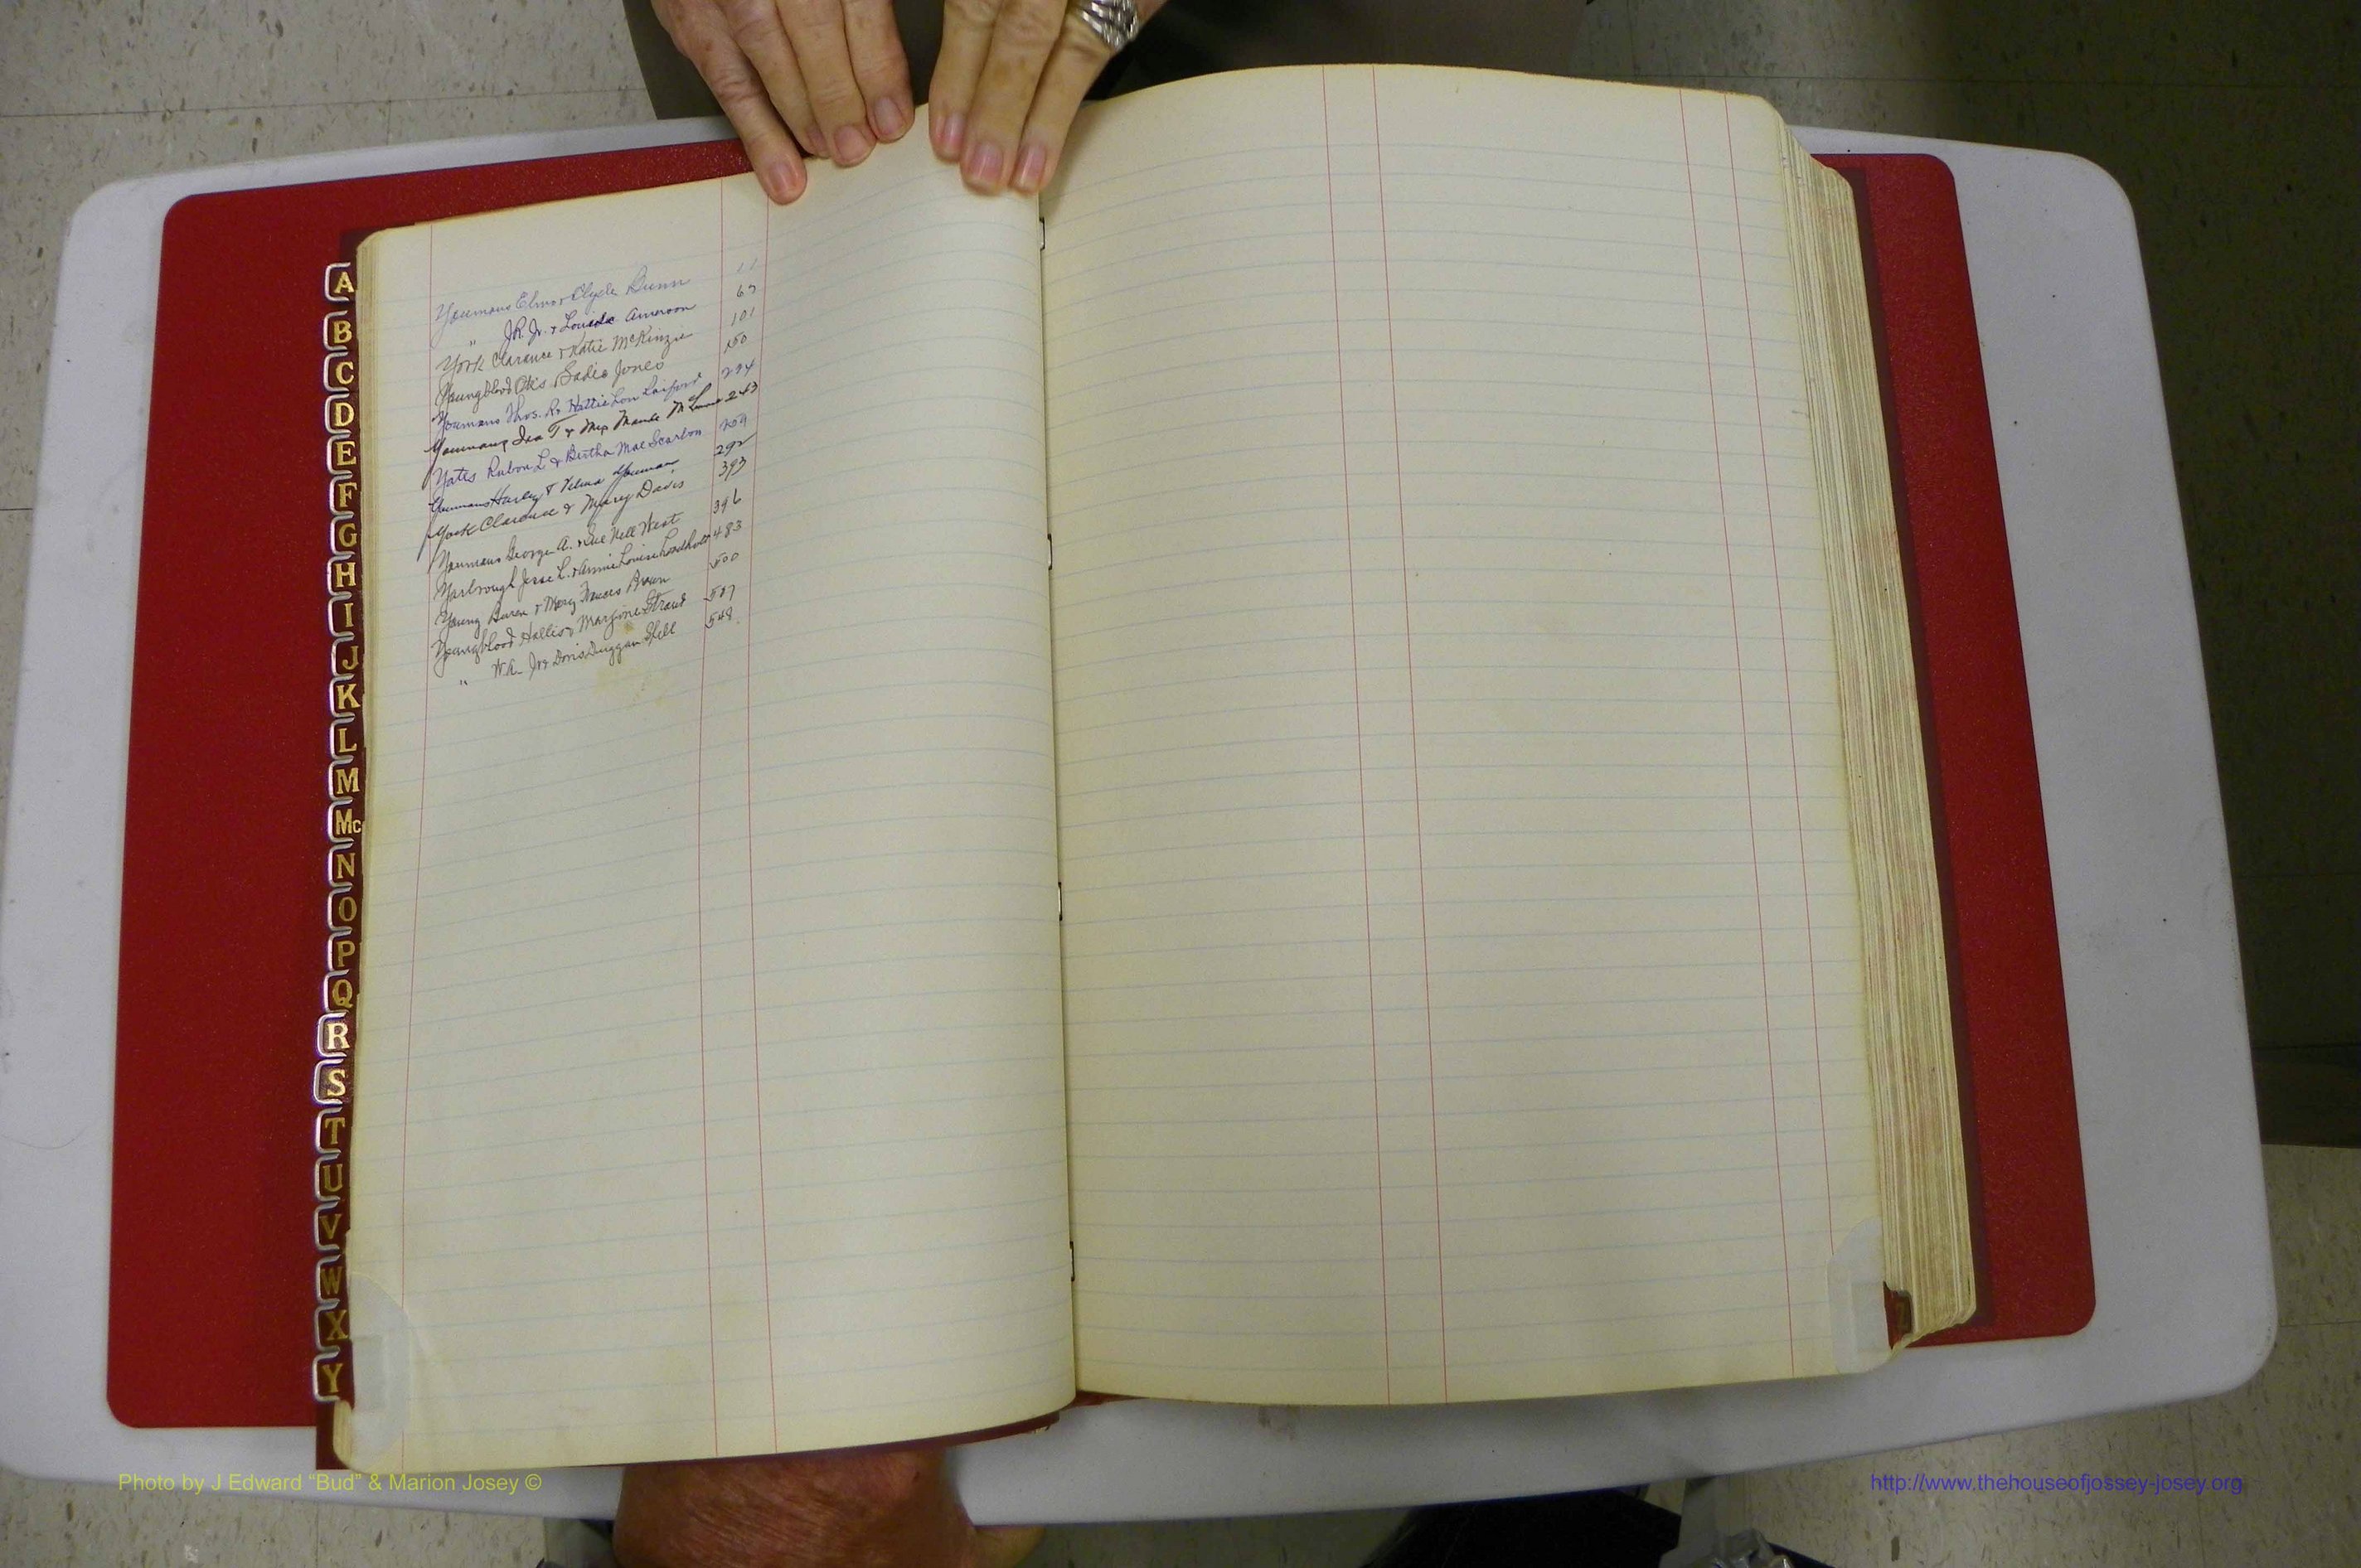 Youmans Elmo & Clyde Dunn 11
" J.R. Jr. & Louida Ameroon 67
York Clarance & Katie McKinzie 101
Youngblood Otis Sadie Jones 150
Youmans Thos. R. Hattie Lou 224
Youmans Ira T & Mrs Maude 243
Yates Rubon L & Bertha Mae Scarbon 209
Youmans Harley & Velma Youmans 292
York Clarence & Mary Davis 393
Youmans George A. & Sue Nell West 396
Yarbrough Jesse L. & Annie Louise Leadholt 483
Young Buren & Mary Frances Brown 500
Youngblood Hollis & Marjorie Straud 507
" W.A. Jr & Doris Duggan Spell 548
A
B
C
D
E
F
G
H
I
J
K
L
M
Mc
N
O
P
Q
R
S
T
U
V
W
X
Y
Photo by J Edward “Bud” & Marion Josey ©
http://www.thehouseofjossey-josey.org